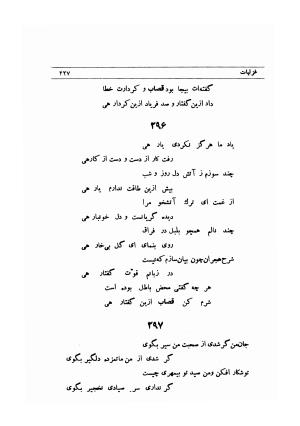 غزلیات ۴۲۷
گفته‌ات بیجا بود قصاب و کردارت خطا
داد ازین گفتار و صد فریاد ازین کردار هی
۳۹۶
یاد ما هرگز نکردی یار هی
رفت کار از دست و دست از کار هی
چند سوزم ز آتش دل روز و شب
بیش ازین طاقت ندارم یار هی
از غمت ای ترک آتشخو مرا
دیده گریانست و دل خونبار هی
چند نالم همچو بلبل در فراق
روی بنمای ای گل بی‌خار هی
شرح هجران چون بیان سازم که نیست
در زبانم قوّت گفتار هی
هر چه گفتی محض باطل بوده است
شرم کن قصاب ازین گفتار هی
۳۹۷
جان من گر شدی از صحبت من سیر بگوی
گر شدی از من ماتمزده دلگیر بگوی
تو شکار افکن و من صید تو بیمهری چیست
گر نداری سر صیادی نخجیر بگوی